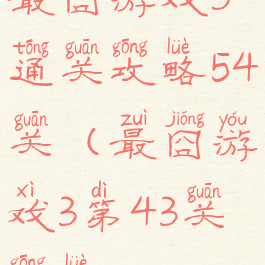 最囧游戏3
tōng guān gōng lüè
通关攻略54
guān zuì jiǒng yóu
关（最囧游
xì dì guān
戏3第43关
gōng lüè